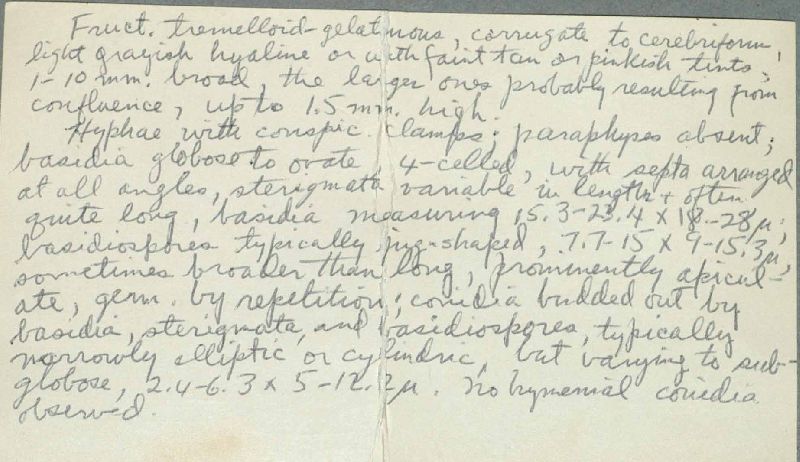 Fruct. tremelloid-gelatinous, corrugate to cerebriform,
light grayish hyaline or with faint tan or pinkish tints;
1-10 mm. broad, the larger ones probably resulting from
confluence, up to 1.5 mm. high.
Hyphae with conspic. clamps; paraphyses absent;
basidia globose to ovate, 4-celled, with septa arranged
at all angles, sterigmata variable in length + often
quite long, basidia measuring 15.3-23.4 x 18-28µ;
basidiospores typically jug-shaped, 7.7-15 x 9-15.3µ,
sometimes broader than long, prominently apicul-
ate, germ. by repetition; conidia budded out by
basidia, sterigmata, and basidiospores, typically
narrowly elliptic or cylindric, but varying to sub-
globose, 2.4-6.3 x 5-12.2µ. No hymenial conidia
observed.